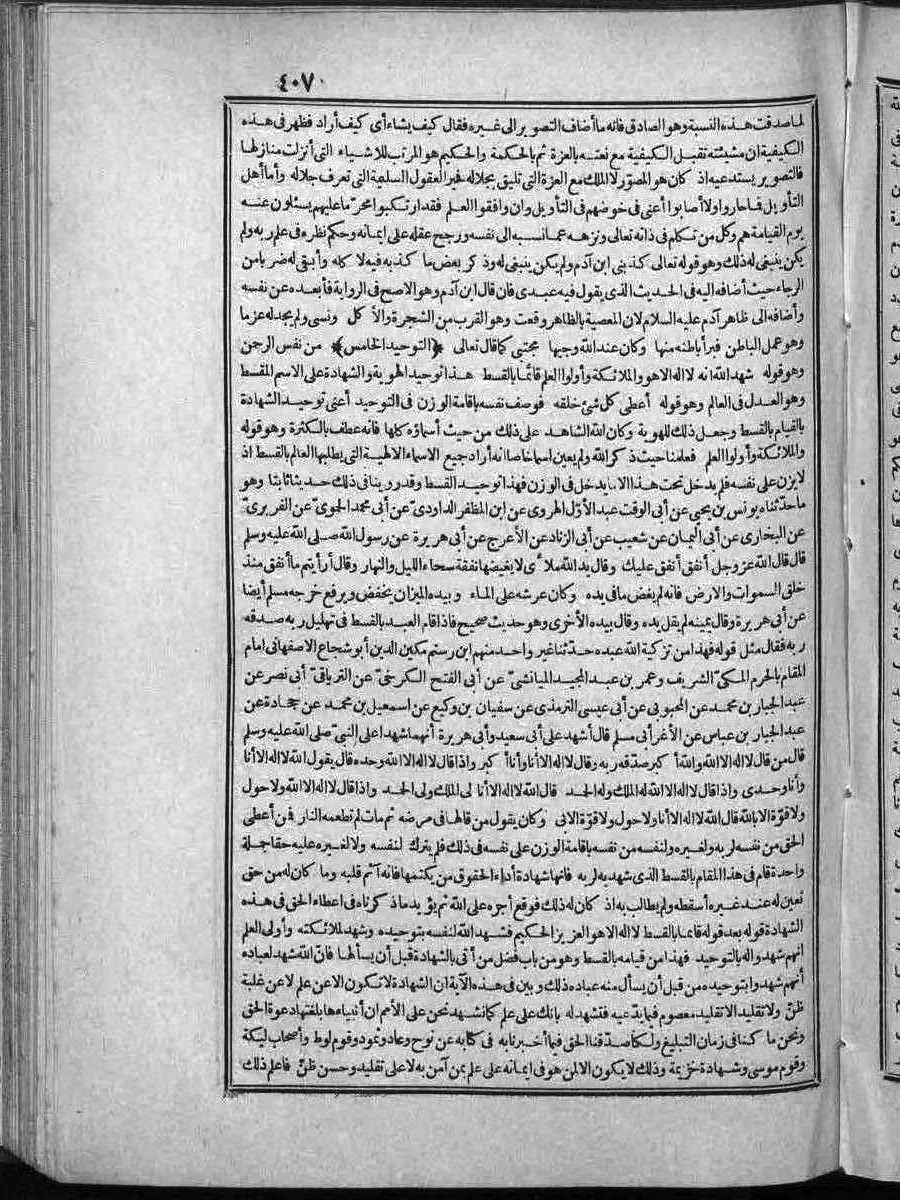 ٤٠٧
لما صدقت هذه النسبة وهو الصادق فانه ما أضاف التصوير الى غيره فقال كيف يشاء أى كيف أراد فظهر فى هذه
الكيفية ان مشيئته تقبل الكيفية مع نعته بالعزة ثم بالحكمة والحكيم هو المرتب للاشياء التى أنزلت منازلها
فالتصوير يستدعيه اذ كان هو المصوّر لا الملك مع العزة التى تليق بجلاله فحير العقول السليمة التى تعرف جلاله وأما أهل
التأويل فما حاروا ولا أصابوا أعنى فى خوضهم فى التأويل وان وافقوا العلم فقد ارتكبوا محرّما عليهم يسئلون عنه
يوم القيامة هم وكل من تكلم فى ذاته تعالى ونزهه عما نسبه الى نفسه ورجح عقله على ايمانه وحكم نظره فى علم ربه ولم
يكن ينبغى له ذلك وهو قوله تعالى كذبنى ابن آدم ولم يكن ينبغى له وذكر بعض ما كذبه فيه لا كله وأبقى له ضربا من
الرجاء حيث أضافه اليه فى الحديث الذى يقول فيه عبدى فان قال ابن آدم وهو الاصح فى الرواية فأبعده عن نفسه
وأضافه الى ظاهر آدم عليه السلام لان المعصية بالظاهر وقعت وهو القرب من الشجرة والأكل ونسى ولم يجد له عزما
وهو عمل الباطن فبرأ باطنه منها وكان عند الله وجيها مجتبى كما قال تعالى ﴿التوحيد الخامس﴾ من نفس الرحمن
وهو قوله شهد الله انه لا اله الا هو والملائكة وأولوا العلم قائما بالقسط هذا توحيد الهوية والشهادة على الاسم المقسط
وهو العدل فى العالم وهو قوله أعطى كل شئ خلقه فوصف نفسه باقامة الوزن فى التوحيد أعنى توحيد الشهادة
بالقيام بالقسط وجعل ذلك للهوية وكان الله الشاهد على ذلك من حيث أسماؤه كلها فانه عطف بالكثرة وهو قوله
والملائكة وأولوا العلم فعلمنا حيث ذكر الله ولم يعين اسما خاصا انه أراد جميع الاسماء الالهية التى يطلبها العالم بالقسط اذ
لا يزن على نفسه فلم يدخل تحت هذا الا ما يدخل فى الوزن فهذا توحيد القسط وقد روينا فى ذلك حديثا ثابتا وهو
ما حدّثناه يونس بن يحيى عن أبى الوقت عبد الأوّل الهروى عن ابن المظفر الداودىّ عن أبى محمد الحموىّ عن الفربرىّ
عن البخارى عن أبى اليمان عن شعيب عن أبى الزناد عن الأعرج عن أبى هريرة عن رسول الله صلى الله عليه وسلم
قال قال الله عز وجل أنفق أنفق عليك وقال يد الله ملأى لا يغيضها نفقة سحاء الليل والنهار وقال أرأيتم ما أنفق منذ
خلق السموات والارض فانه لم يغض ما فى يده وكان عرشه على الماء وبيده الميزان يخفض ويرفع خرجه مسلم أيضا
عن أبى هريرة وقال يمينه لم يقل يده وقال بيده الأخرى وهو حديث صحيح فاذا قام العبد بالقسط فى تهليل ربه صدقه
ربه فقال مثل قوله فهذا من تزكية الله عبده حدّثنا غير واحد منهم ابن رستم مكين الدين أبو شجاع الاصفهانى امام
المقام بالحرم المكىّ الشريف وعمر بن عبد المجيد الميانشىّ عن أبى الفتح الكرخىّ عن الترياقىّ أبى نصر عن
عبد الجبار بن محمد عن المحبوبى عن أبى عيسى الترمذى عن سفيان بن وكيع عن اسمعيل بن محمد عن جحادة عن
عبد الجبار بن عباس عن الأغر أبى مسلم قال أشهد على أبى سعيد وأبى هريرة أنهما شهدا على النبىّ صلى الله عليه وسلم
قال من قال لا اله الا الله والله أكبر صدّقه ربه وقال لا اله الا أنا وأنا أكبر واذا قال لا اله الا الله وحده قال يقول الله لا اله الا أنا
وأنا وحدى واذا قال لا اله الا الله له الملك وله الحمد قال الله لا اله الا أنا لى الملك ولى الحمد واذا قال لا اله الا الله ولا حول
ولا قوّة الا بالله قال الله لا اله الا أنا ولا حول ولا قوة الا بى وكان يقول من قالها فى مرضه ثم مات لم تطعمه النار فمن أعطى
الحق من نفسه لربه ولغيره ولنفسه من نفسه باقامة الوزن على نفسه فى ذلك فلم يترك لنفسه ولا لغيره عليه حقا جملة
واحدة قام فى هذا المقام بالقسط الذى شهد به لربه فانها شهادة أداء الحقوق من يكتمها فانه آثم قلبه وما كان له من حق
تعين له عند غيره أسقطه ولم يطالب به اذ كان له ذلك فوقع أجره على الله ثم يؤيد ما ذكرناه فى اعطاء الحق فى هذه
الشهادة قوله بعد قوله قائما بالقسط لا اله الا هو العزيز الحكيم فشهد الله لنفسه بتوحيده وشهد لملائكته وأولى العلم
انهم شهدوا له بالتوحيد فهذا من قيامه بالقسط وهو من باب فضل من أتى بالشهادة قبل أن يسألها فانّ الله شهد لعباده
أنهم شهدوا بتوحيده من قبل أن يسأل منه عباده ذلك وبين فى هذه الآية ان الشهادة لا تكون الا عن علم لا عن غلبة
ظنّ ولا تقليد الا تقليد معصوم فيما يدّعيه فتشهد له بانك على علم كما نشهد نحن على الأمم ان أنبياءها بلغتها دعوة الحق
ونحن ما كنا فى زمان التبليغ ولكنا صدّقنا الحق فيما أخبرنا به فى كتابه عن نوح وعاد وثمود وقوم لوط وأصحاب ليكة
وقوم موسى وشهادة خزيمة وذلك لا يكون الا لمن هو فى ايمانه على علم بمن آمن به لا على تقليد وحسن ظنّ فاعلم ذلك